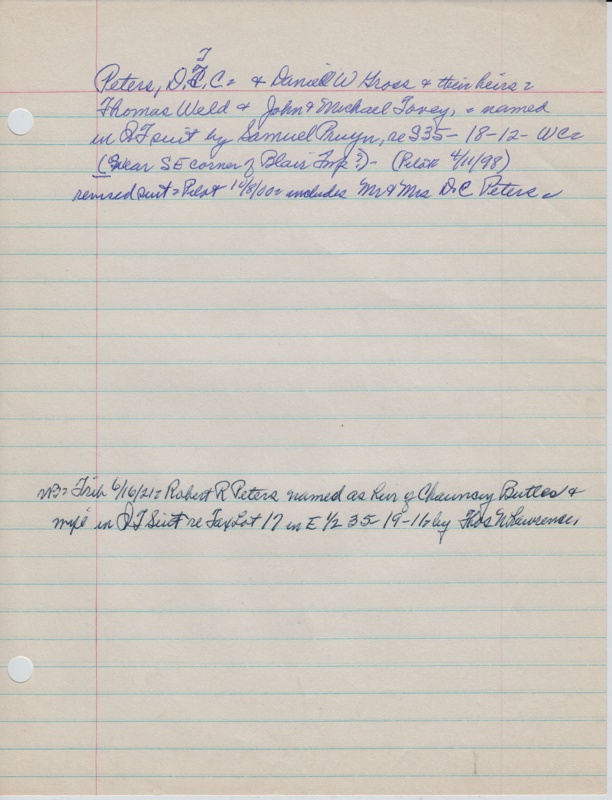 T
Peters, D. F. C = & Daniel W Gross & their heirs =
Thomas Weld & John & Michael Tovey, = named
in QT suit by Samuel Pruyn, re S35-18-12- WC=
(near SE corner of Blair Twp?)- (Pilot 4/11/98)
revised suit = Pilot 11/8/00 = includes Mr & Mrs D.C. Peters =
NB= Trib 6/16/21= Robert R Peters named as heir of Chauncey Butles &
wife in QT Suit re Tax Lot 17 in E 1/2 35-19-11 by Thos N Lawrence.